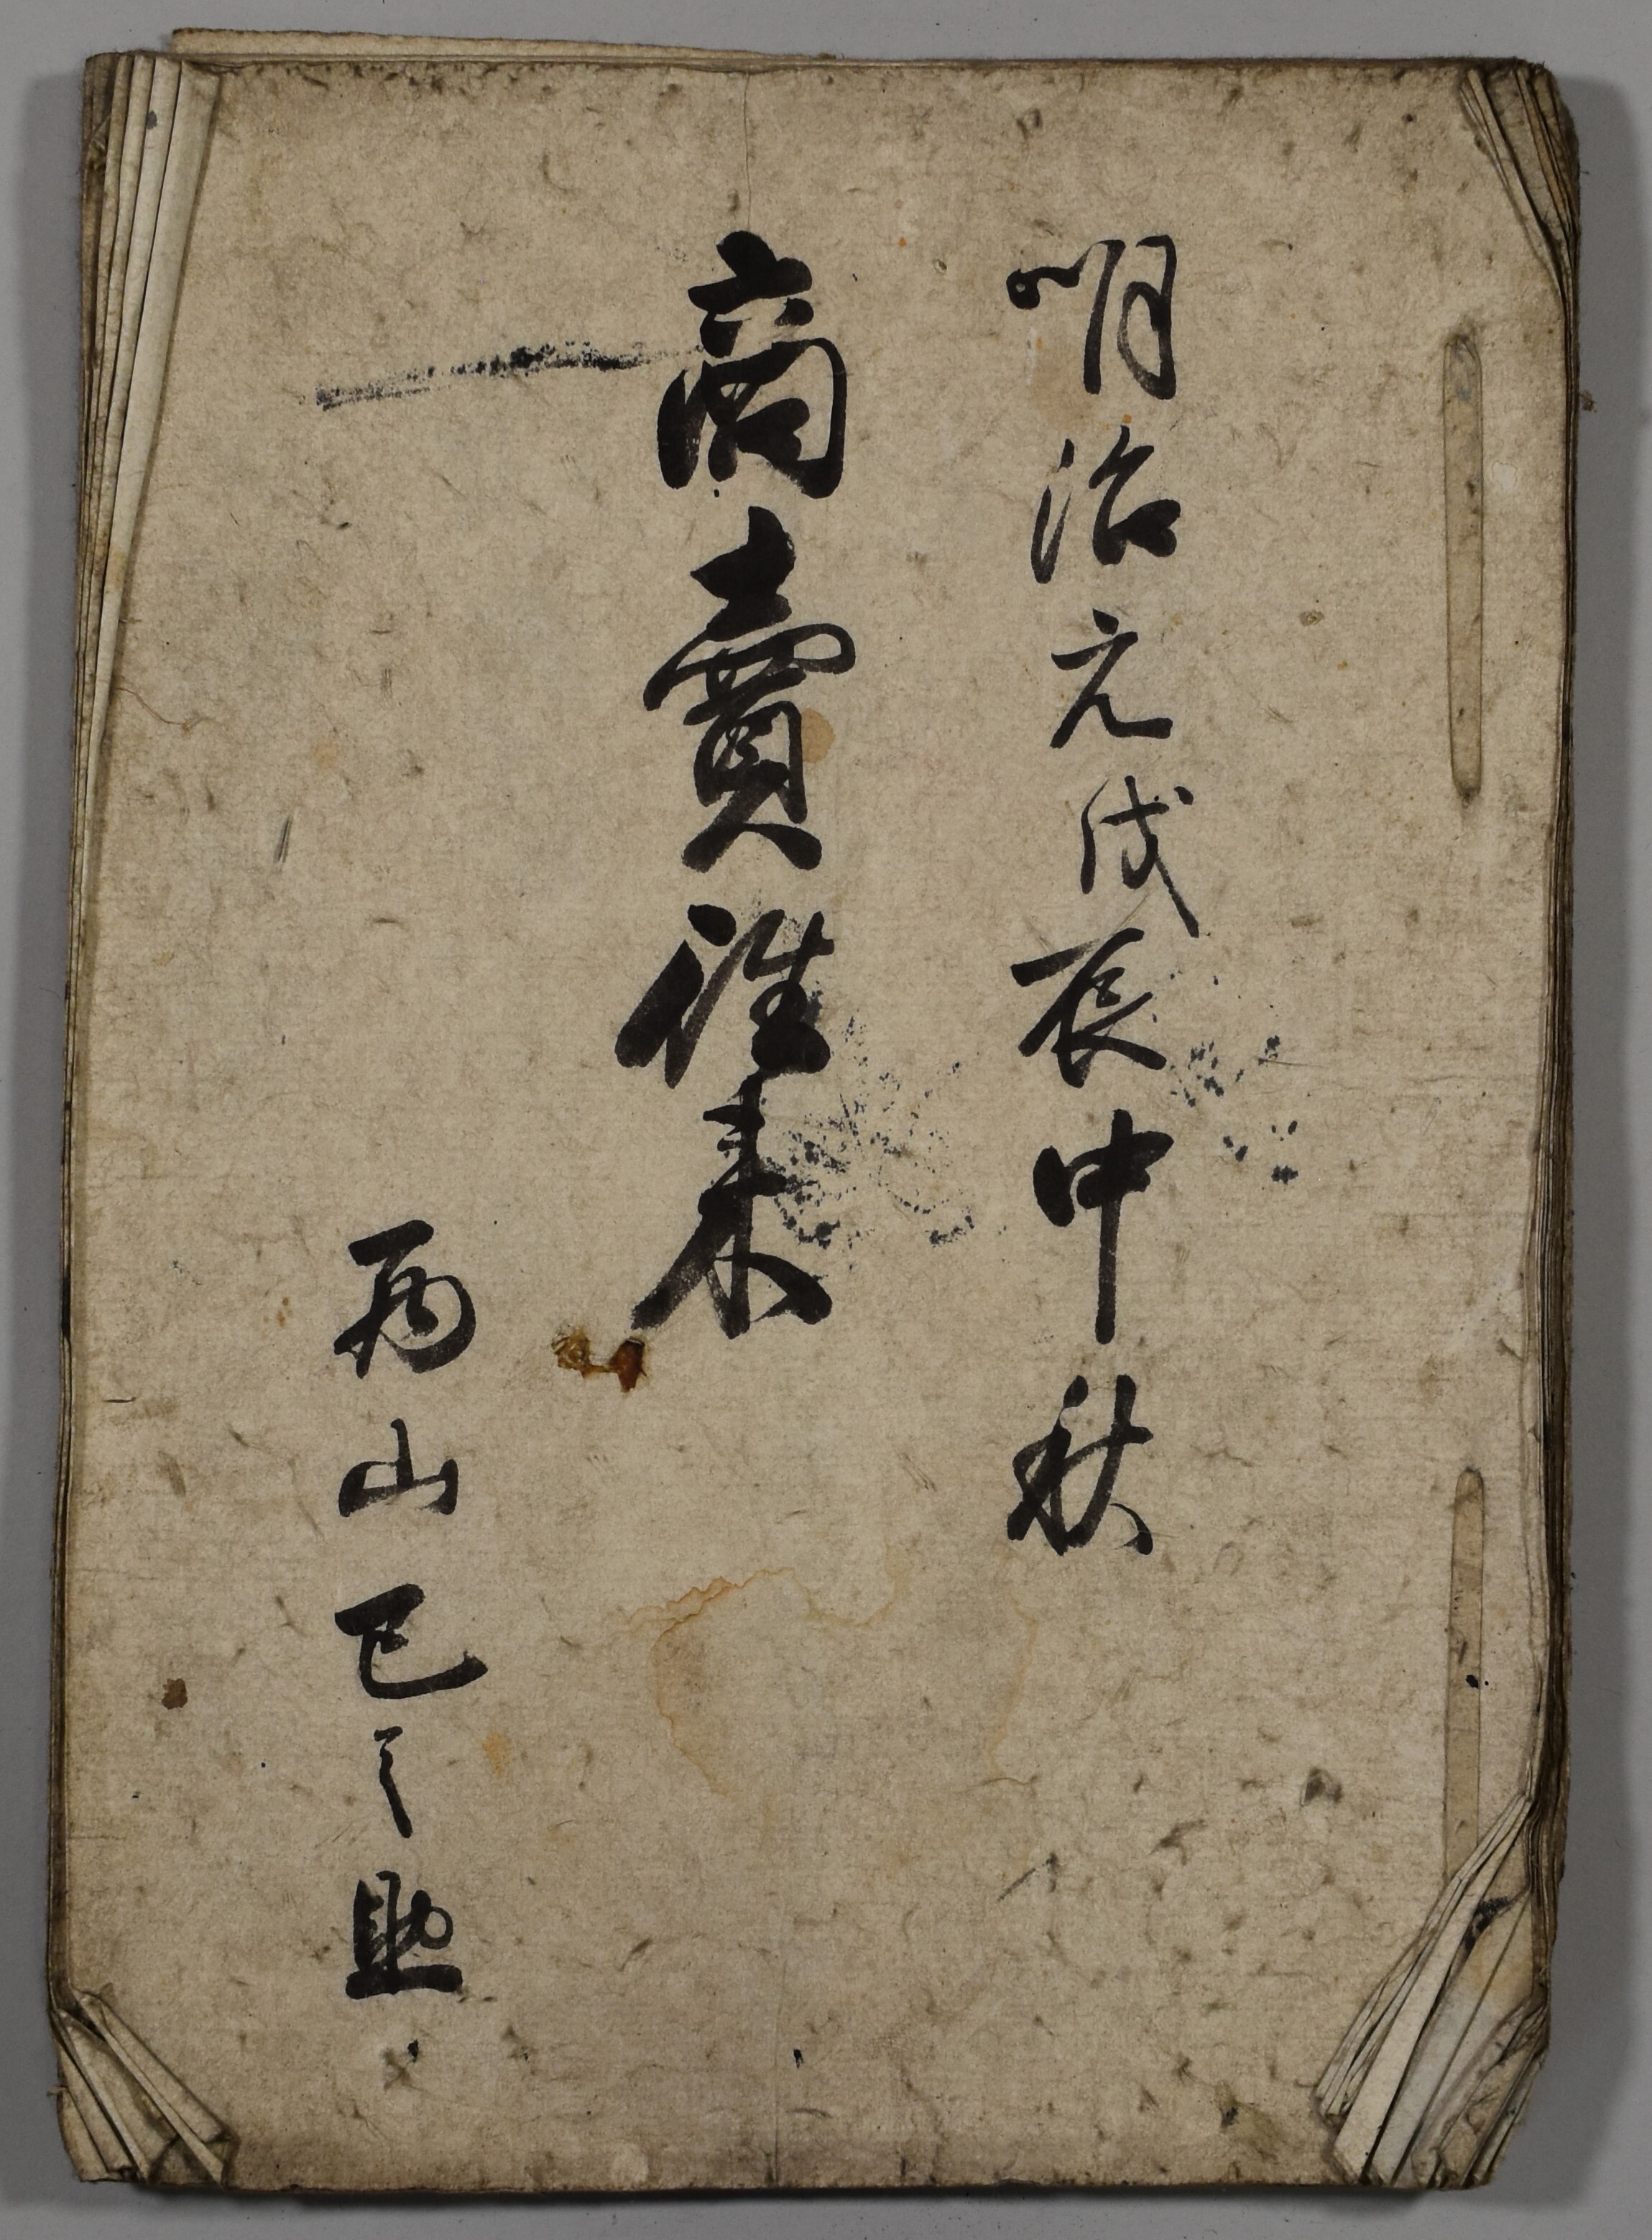 明治元戊辰中秋
商賣徃来
両山巳之助